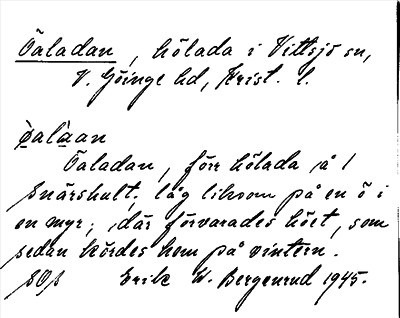 Öaladan, hölada i Vittsjö sn,
V. Göinge hd, Krist. l.
Öaladan, förr hölada å 1
Snärshult; låg liksom på en ö i
en myr; där förvarades höet, som
sedan kördes hem på vintern.
Erik W. Bergenrud 1945.